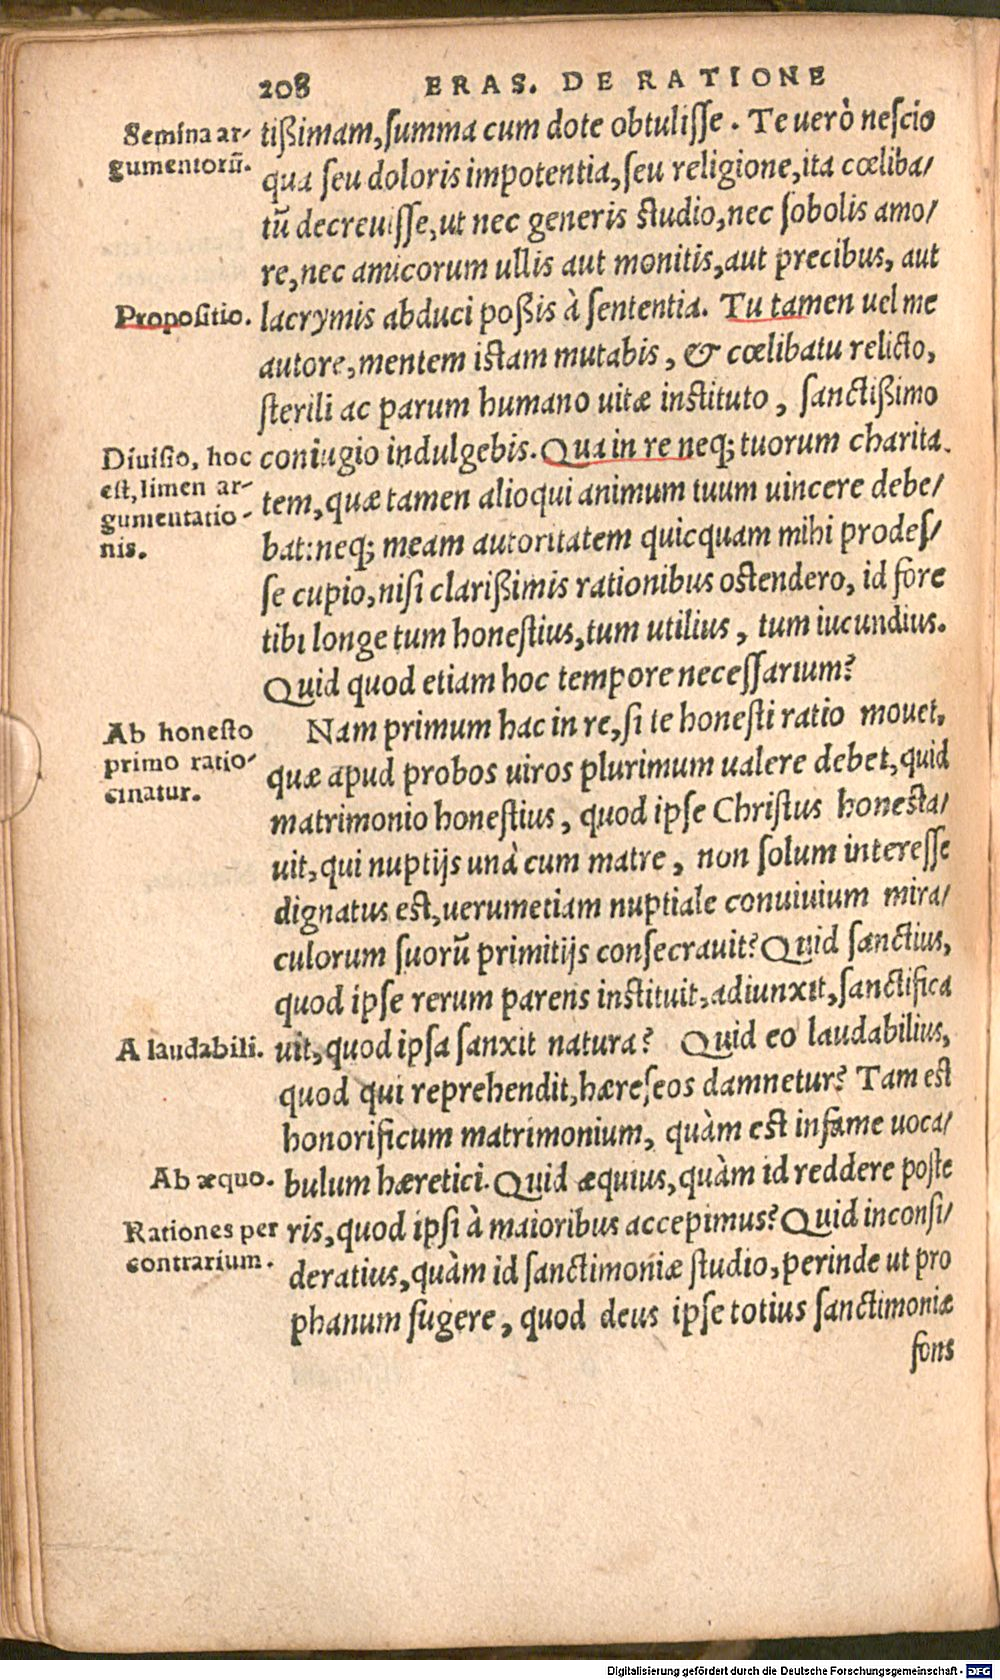 208 ERAS. DE RATIONE
Semina ar-
gumentorũ.
tißimam, ſumma cum dote obtuliſſe. Te uerò neſcio
qua ſeu doloris impotentia, ſeu religione, ita cœliba/
tũ decreuiſſe, ut nec generis ſtudio, nec ſobolis amo/
re, nec amicorum ullis aut monitis, aut precibus, aut
Propoſitio.
lacrymis abduci poßis à ſententia. Tu tamen uel me
autore, mentem iſtam mutabis, & cœlibatu relicto,
ſterili ac parum humano uitæ inſtituto, ſanctißimo
Diuiſio, hoc
est, limen ar-
gumentatio-
nis.
coniugio indulgebis. Qua in re neq; tuorum charita.
tem, quæ tamen alioqui animum tuum uincere debe/
bat: neq; meam autoritatem quicquam mihi prodeſ/
ſe cupio, niſi clarißimis rationibus oſtendero, id fore
tibi longe tum honeſtius, tum utilius, tum iucundius.
Quid quod etiam hoc tempore neceſſarium?
Ab honeſto
primo ratio-
cinatur.
Nam primum hac in re, ſi te honeſti ratio mouet,
quæ apud probos uiros plurimum ualere debet, quid
matrimonio honeſtius, quod ipſe Chriſtus honeſta/
uit, qui nuptijs unà cum matre, non ſolum intereſſe
dignatus eſt, uerumetiam nuptiale conuiuium mira/
culorum ſuorũ primitijs conſecrauit? Quid ſanctius,
quod ipſe rerum parens inſtituit, adiunxit, ſanctifica
A laudabili.
uit, quod ipſa ſanxit natura? Quid eo laudabilius,
quod qui reprehendit, hæreſeos damnetur? Tam eſt
honorificum matrimonium, quàm eſt infame uoca/
Ab æquo.
bulum hæretici. Quid æquius, quàm id reddere poſte
Rationes per
contrarium.
ris, quod ipſi à maioribus accepimus? Quid inconſi/
deratius, quàm id ſanctimoniæ ſtudio, perinde ut pro
phanum fugere, quod deus ipſe totius ſanctimoniæ
fons
Digitalisierung gefördert durch die Deutsche Forschungsgemeinschaft - DFG